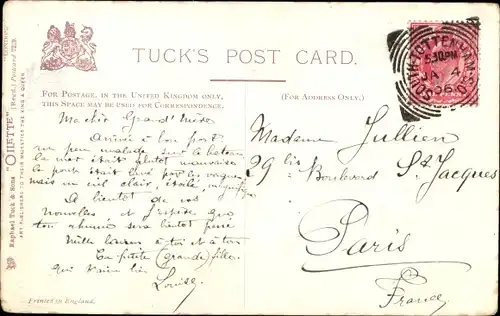 TUCK'S POST CARD.
FOR POSTAGE, IN THE UNITED KINGDOM ONLY,
THIS SPACE MAY BE USED FOR CORRESPONDENCE.
(FOR ADDRESS ONLY.)
SOUTH TOTTENHAM. S.O
5.30 PM
JA 4
06
Ma chère Grand'Mère
Arrivée à bon port
un peu malade sur le bateau
la mer était plutôt mauvaise
le pont était lavé par les vagues
mais un ciel clair, étoilé, magnifique
A bientôt de vos
nouvelles, et j'espère que
ton rhume sera bientôt passé
Mille baisers à toi et à
Ta petite (grande) fille
qui t'aime bien
Louise
Madame Jullien
29 bis Boulevard St. Jacques
Paris
France
Raphael Tuck & Sons "OILETTE" (Regd.) Postcard
ART PUBLISHERS TO THEIR MAJESTIES THE KING & QUEEN.
Printed in England.